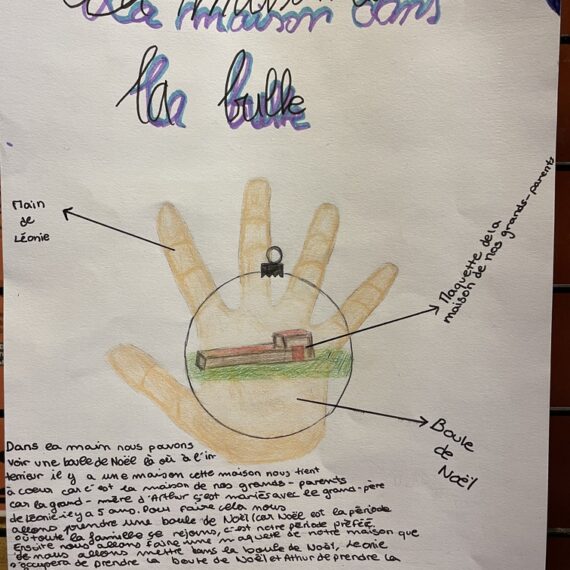 La maison dans
la bulle
Main
de
Léonie
Maquette de la
maison de nos grands-parents
Boule
de
Noël
Dans la main nous pouvons
voir une boule de Noël là où à l'in
terrieur il y a une maison cette maison nous tient
à coeur car c'est la maison de nos grands-parents
car la grand-mère d'Arthur s'est mariés avec le grand-père
de Léonie il y a 5 ans. Pour faire cela nous
allons prendre une boule de Noël (car Noël est la période
où toute la famille se rejoins, c'est notre période préfée.
Ensuite nous allons faire une maquete de notre maison que
nous allons mettre dans la boule de Noël, Leonie
s'occupera de prendre la boule de Noël et Arthur de prendre la